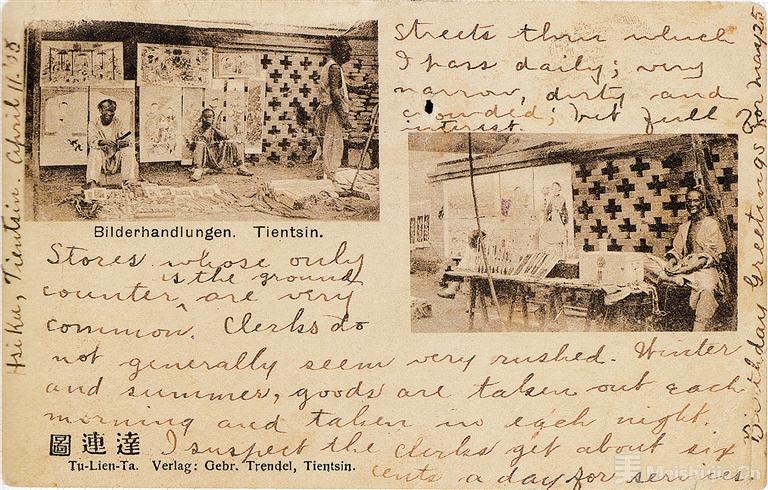 Streets thru which
I pass daily; very
narrow, dirty and
crowded; but full
interest.
Bilderhandlungen. Tientsin.
Stores whose only
is the ground
counter ^ are very
common. Clerks do
not generally seem very rushed. Winter
and summer, goods are taken out each
morning and taken in each night.
I suspect the clerks get about six
cents a day for services.
圖連達
Tu-Lien-Ta. Verlag: Gebr. Trendel, Tientsin.
Hsi Ku, Tientsin. April 11.
Birthday Greetings for May 25
Meishujia.Cn